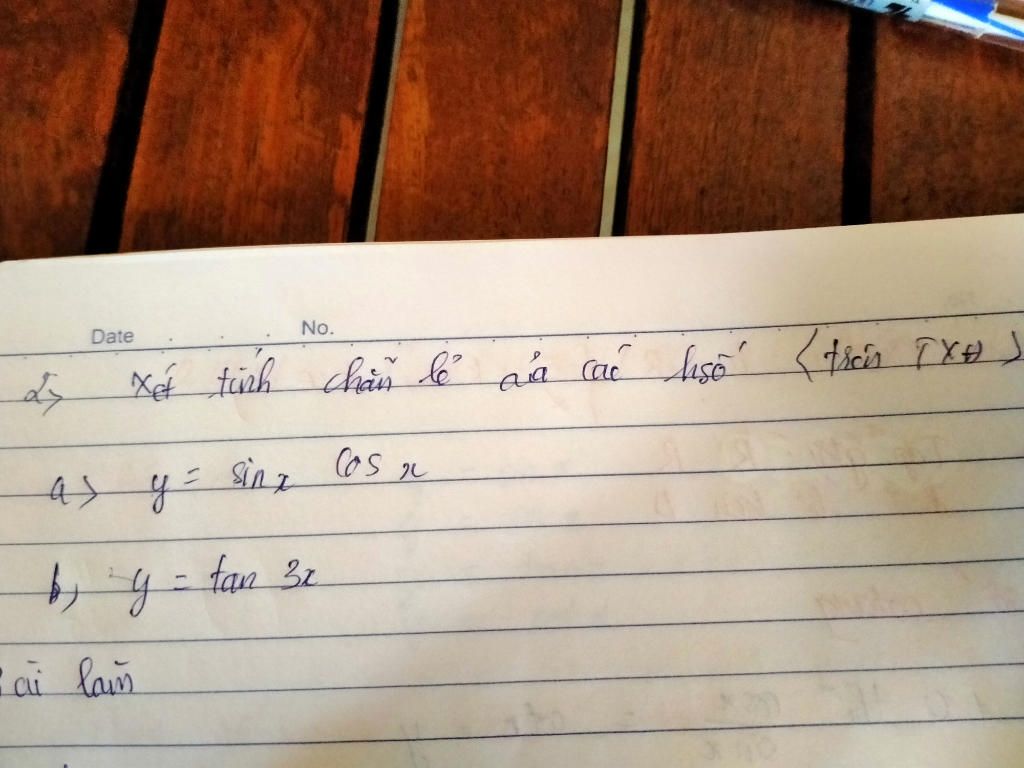 Date No.
2> Xét tính chẵn lẻ của các hsố (trên TXĐ)
a> y = sin x cos x
b, y = tan 3x
Bài làm